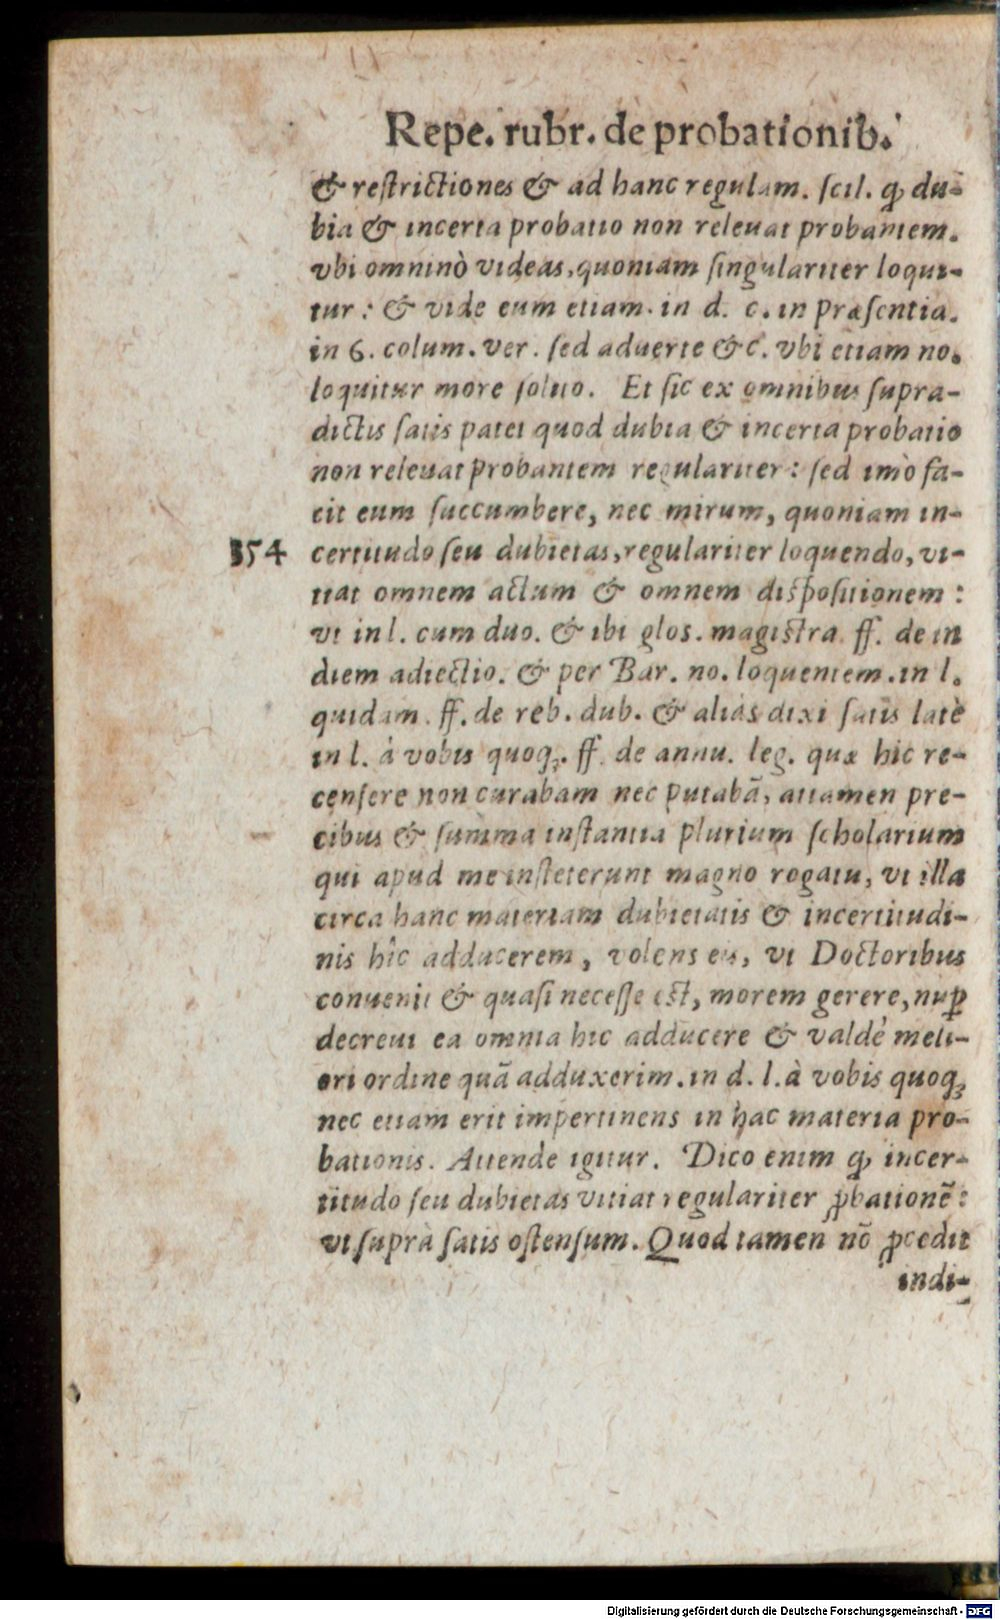 Repe. rubr. de probationib.
& reſtrictiones & ad hanc regulam. ſcil. ꝙ du-
bia & incerta probatio non releuat probantem.
vbi omninò videas, quoniam ſingulariter loqui-
tur: & vide eum etiam. in d. c. in præſentia.
in 6. colum. ver. ſed aduerte &c. vbi etiam no.
loquitur more ſolito. Et ſic ex omnibus ſupra-
dictis ſatis patet quod dubia & incerta probatio
non releuat probantem regulariter: ſed imò fa-
cit eum ſuccumbere, nec mirum, quoniam in-
354 certitudo ſeu dubietas, regulariter loquendo, vi-
tiat omnem actum & omnem diſpoſitionem:
vt in l. cum duo. & ibi glos. magiſtra. ff. de in
diem adiectio. & per Bar. no. loquentem. in l.
quidam. ff. de reb. dub. & aliàs dixi ſatis latè
in l. à vobis quoq;. ff. de annu. leg. quæ hic re-
cenſere non curabam nec putabā, attamen pre-
cibus & ſumma inſtantia plurium ſcholarium
qui apud me inſteterunt magno rogatu, vt illa
circa hanc materiam dubietatis & incertitudi-
nis hîc adducerem, volens eis, vt Doctoribus
conuenit & quaſi neceſſe eſt, morem gerere, nuꝑ
decreui ea omnia hic adducere & valdè meli-
ori ordine quā adduxerim. in d. l. à vobis quoq;
nec etiam erit impertinens in hac materia pro-
bationis. Attende igitur. Dico enim ꝙ incer-
titudo ſeu dubietas vitiat regulariter ꝓbationē:
vt ſuprà ſatis oſtenſum. Quod tamen nō ꝓcedit
indi-
Digitalisierung gefördert durch die Deutsche Forschungsgemeinschaft - DFG